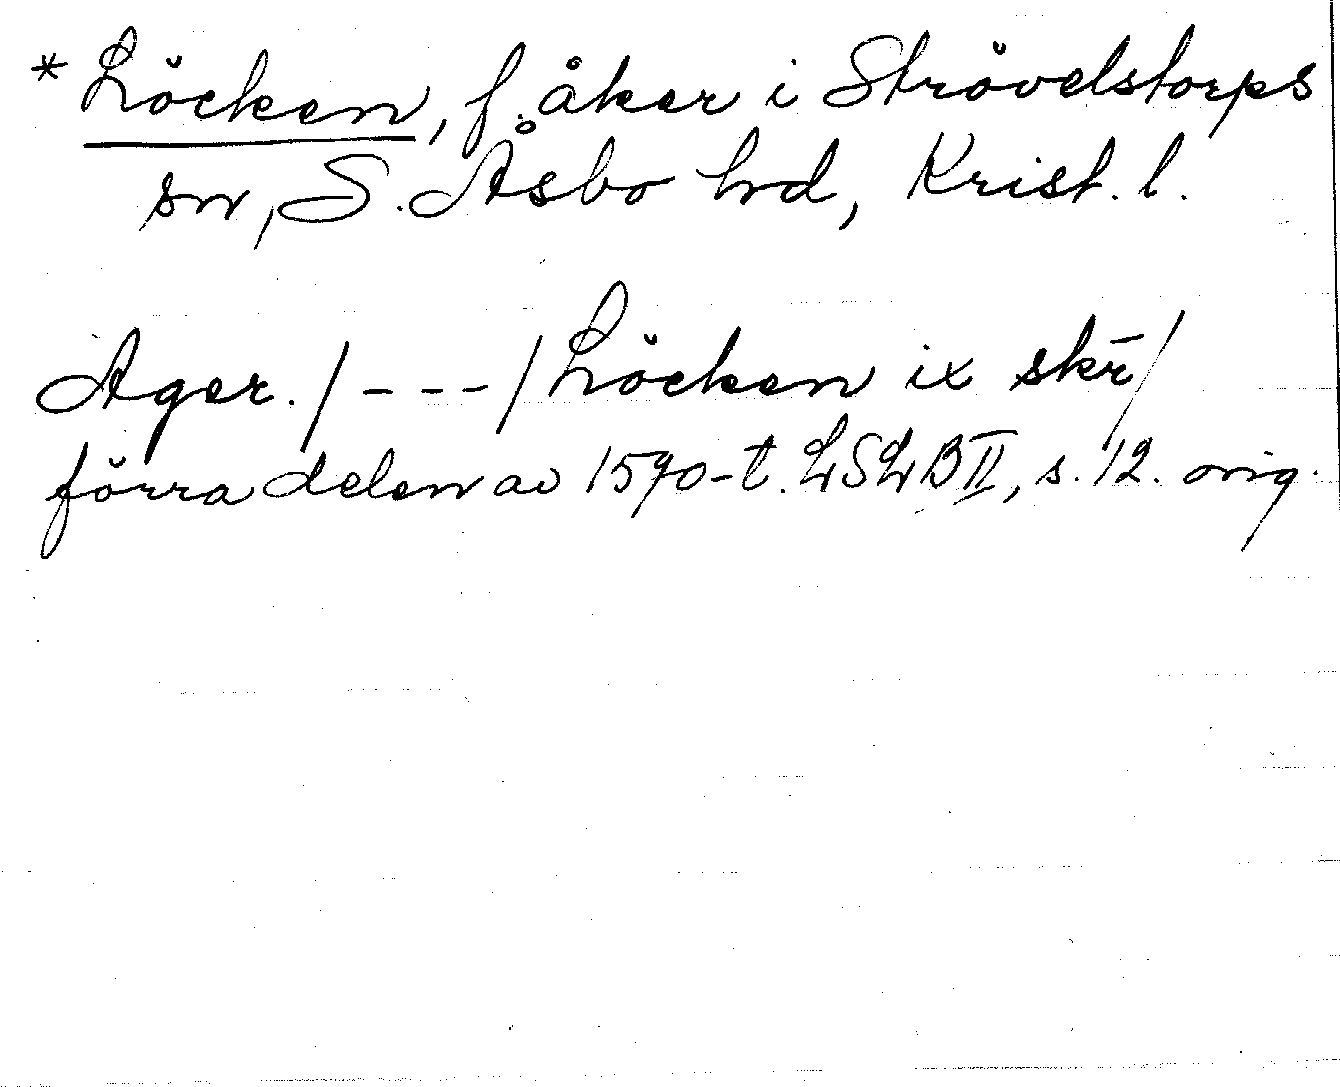 * Löcken, f. åker i Strövelstorps
sn, S. Åsbo hd, Krist. l.
Ager. /---/ Löcken ix skr̄/
förra delen av 1590-t. LSLB II, s. 12. orig.